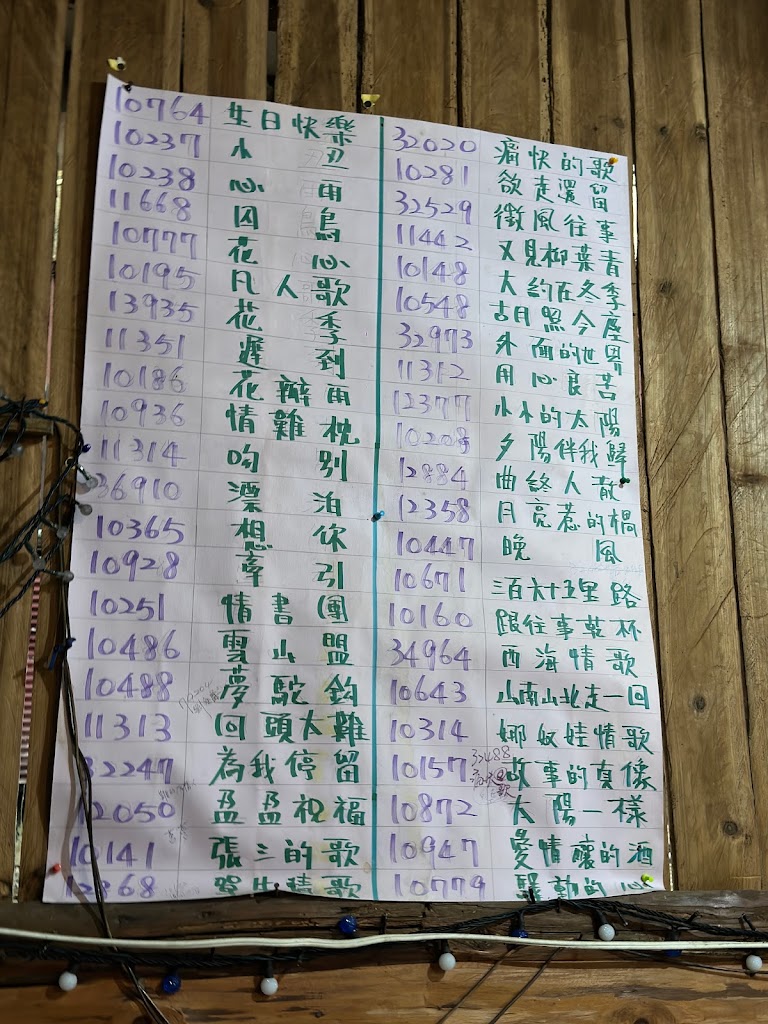 10764 生日快樂
10237 小丑
10238 心雨
11668 囚鳥
10777 花心
10195 凡人歌
13935 花季
11351 遲到
10186 花瓣雨
10936 情難枕
11314 吻別
36910 漂泊
10365 想你
10928 牽引
10251 情書團
10486 雲山盟
10488 夢駝鈴
11313 回頭太難
32247 為我停留
12050 盈盈祝福
10141 張三的歌
12368 情歌
32020 痛快的歌
10281 欲走還留
32529 微風往事
11442 又見柳葉青
10148 大約在冬季
10548 胡月照今塵
32973 外面的世界
11312 用心良苦
12377 小小的太陽
10208 夕陽伴我歸
12884 曲終人散
12358 月亮惹的禍
10447 晚風
10671 三百六十五里路
10160 跟往事乾杯
34964 西海情歌
10643 山南山北走一回
10314 娜奴娃情歌
32488
10157 故事的真像
10872 太陽一樣
10947 愛情釀的酒
10779 騷動的心